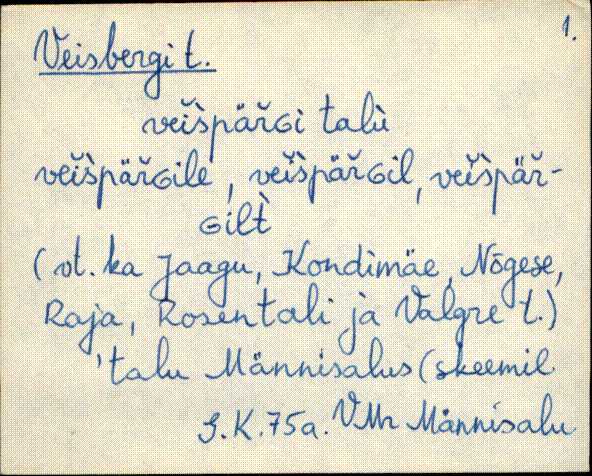 1.
Veisbergi t.
vei̮š̀päřɢi talù
vei̮š̀päřɢile, vei̮š̀päřɢil, vei̮š̀päř-
ɢilt̀
(vt. ka Jaagu, Kondimäe, Nõgese,
Raja, Rosentali ja Valgre t.)
'talu Männisalus (skeemil
S.K. 75a. VMr Männisalu